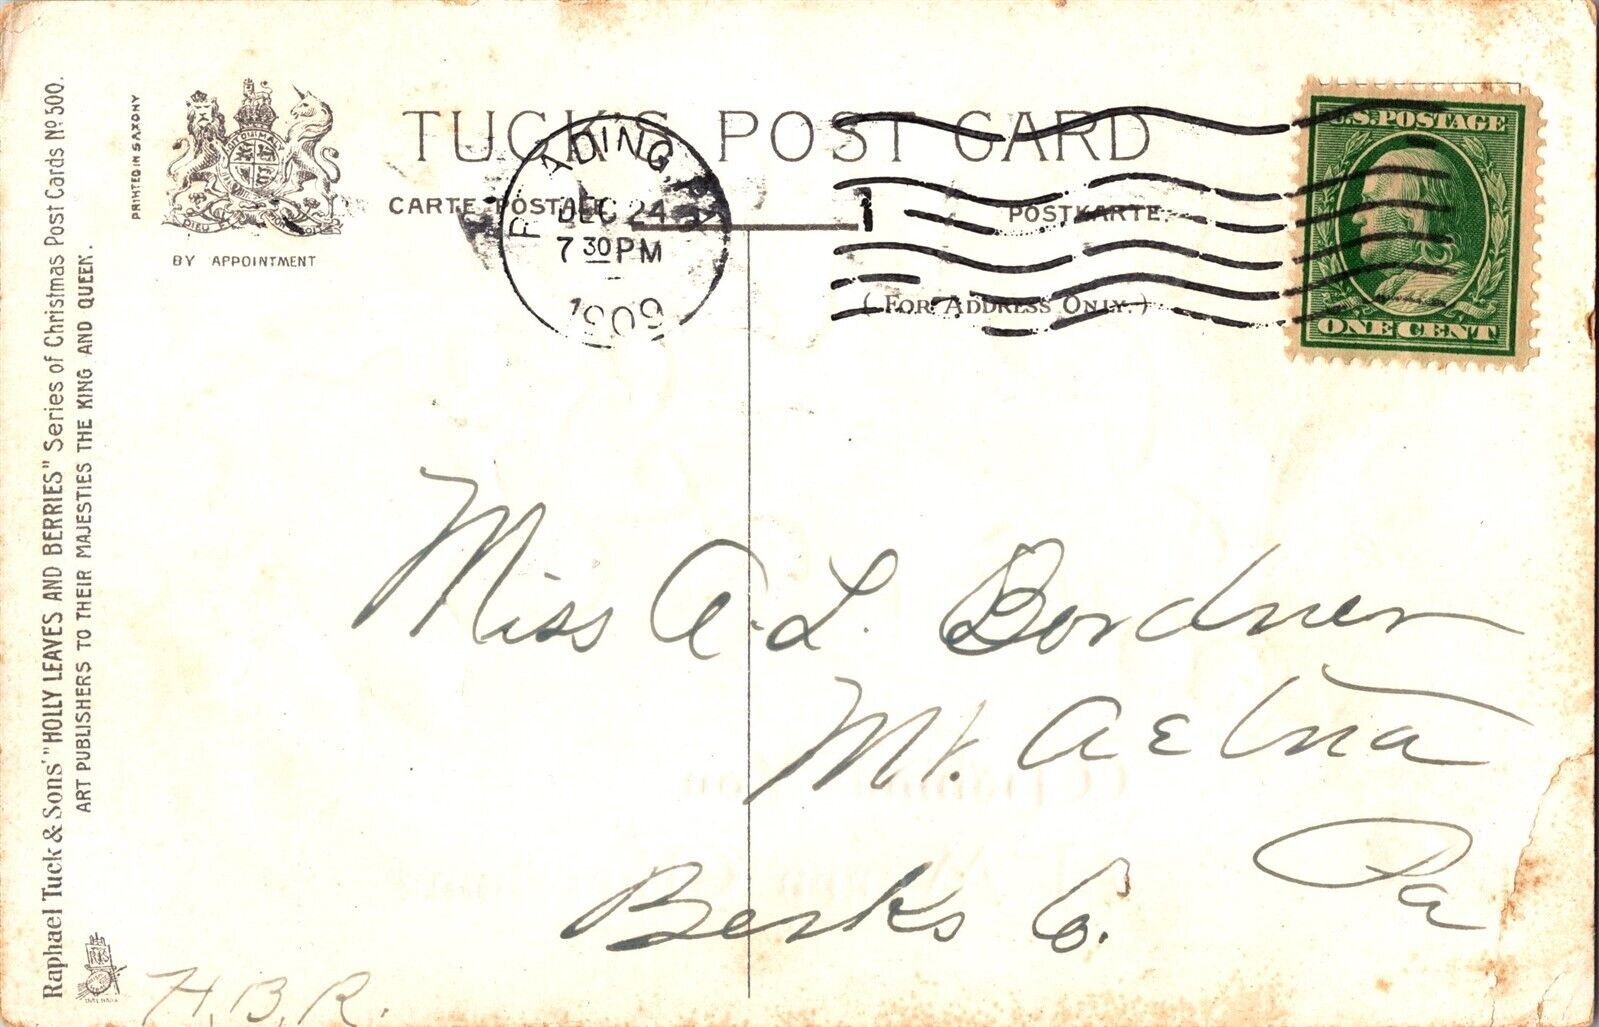 TUCK'S POST CARD
CARTE POSTALE
POSTKARTE
(FOR ADDRESS ONLY.)
PRINTED IN SAXONY
BY APPOINTMENT
READING,
DEC 24
7 30 PM
1909
1
U.S. POSTAGE
ONE CENT
Raphael Tuck & Sons' "HOLLY LEAVES AND BERRIES" Series of Christmas Post Cards No 500.
ART PUBLISHERS TO THEIR MAJESTIES THE KING AND QUEEN.
Miss A. L. Bordner
Mt. Aetna
Berks Co.
Pa
H.B.R.